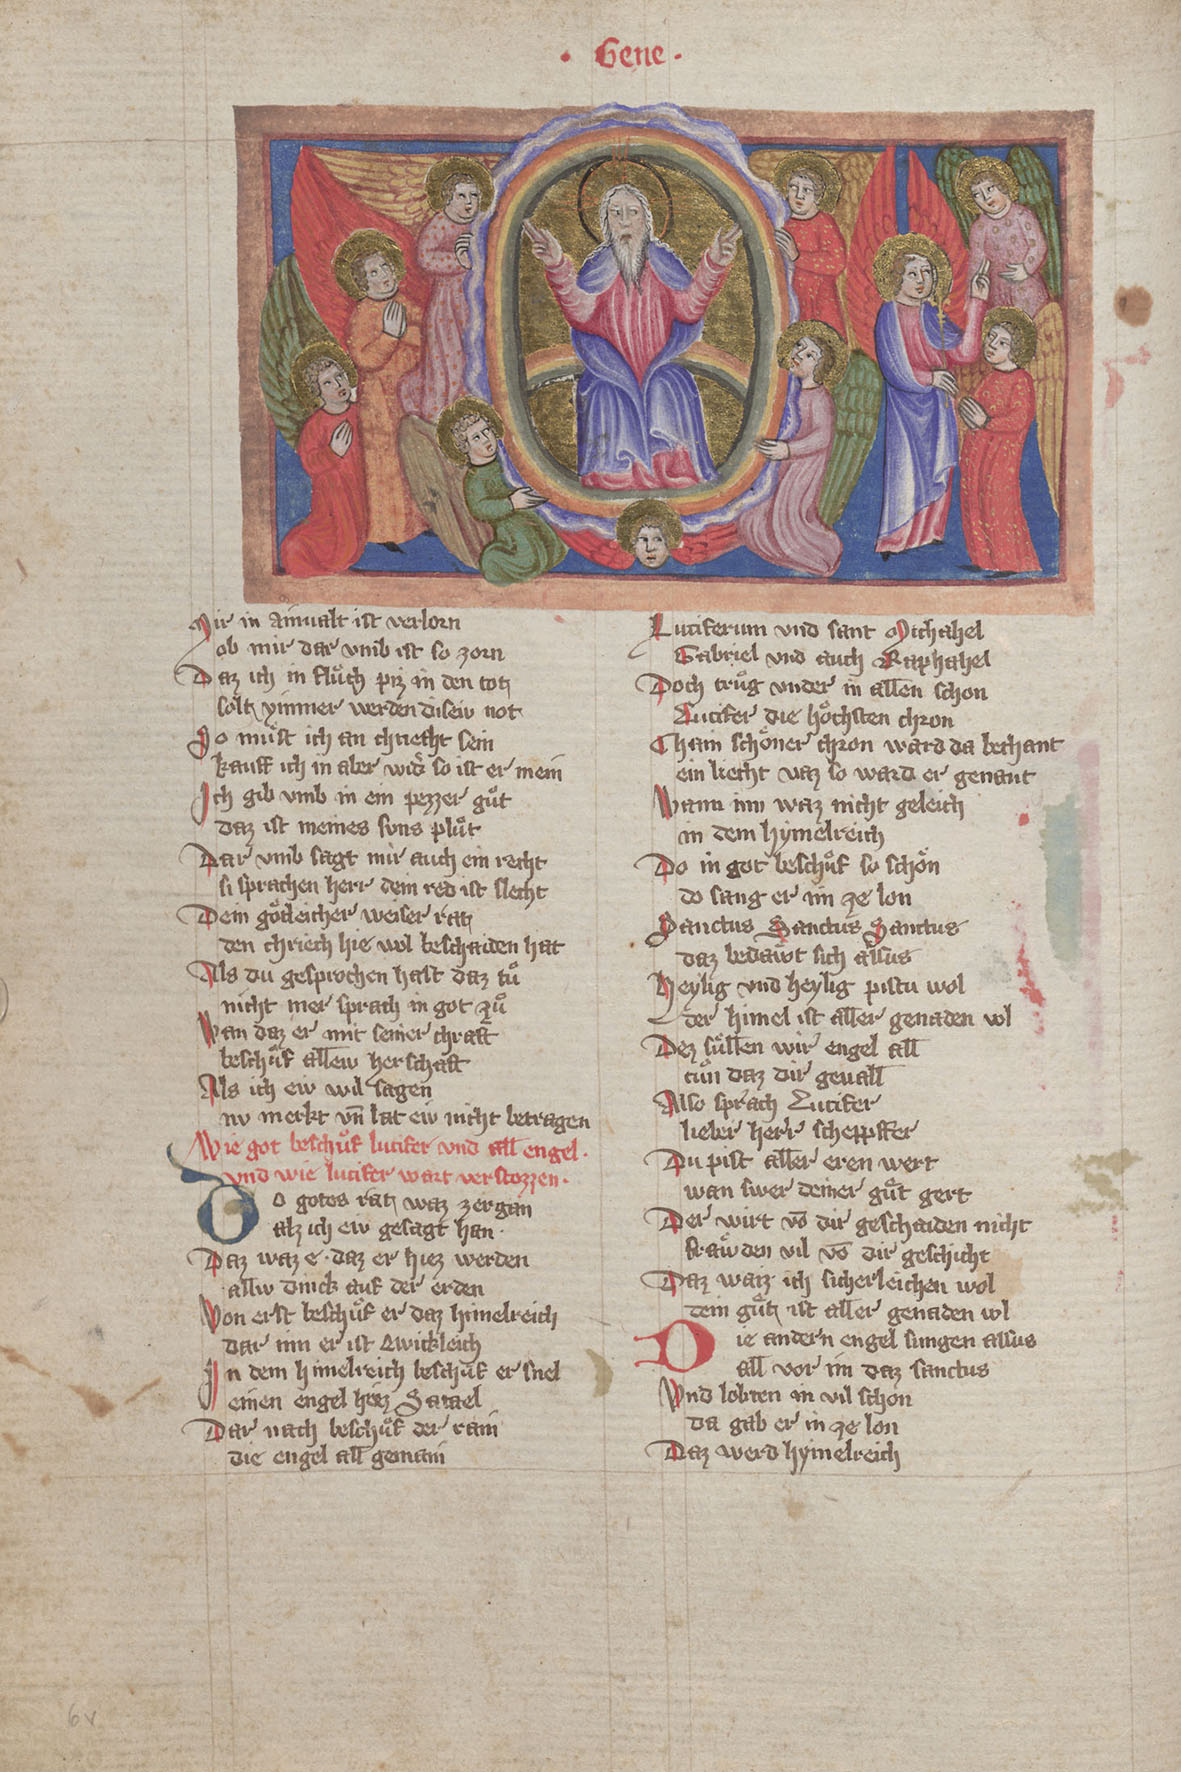 · Gene ·
Mir in ainualt ist verlorn
ob mir dar vmb ist so zorn
Daz ich in flůch piz in den totz
soltz ymmer werden diseiv not
So můst ich an chriecht sein
kauff ich in aber wider so ist er mein
Ich gib vmb in ein pezzer gůt
daz ist meines suns plůt
Dar vmb sagt mir auch ein recht
si sprachen herr dein red ist slecht
Dein götleicher weiser ratz
den chriech hie wol beschaiden hat
Als du gesprochen hast daz tů
nicht mer sprach in got zů
Wan daz er mit seiner chraft
beschůf allew herschaft
Als ich ew wil sagen
nv merkt vn̄ lat ew nicht betragen
Wie got beschůf lucifer vnd all engel ·
vnd wie lucifer wart verstozzen ·
Do gotes ratz waz zergan
alz ich ew gesagt han ·
Daz waz e · daz er hiez werden
allw dinck auf der erden
Von erst beschůf er daz himelreich
dar inn er ist ewickleich
In dem himelreich beschůf er snel
einen engel hiez Satael
Dar nach beschůf der rain
die engel all gemain
Luciferum vnd sant Michahel
Gabriel vnd auch Raphahel
Doch trůg vnder in allen schon
Lucifer die höchsten chron
Chain schöner chron ward da bechant
ein liecht vaz so ward er genant
Wann im waz nicht geleich
in dem hymelreich
Do in got beschůf so schön
do sang er im ze lon
Sanctus Sanctus Sanctus
daz bedäwt sich alsus
Heylig vnd heylig pistu wol
der himel ist aller genaden vol
Dez süllen wir engel all
tůn daz dir geuall
Also sprach Lucifer
lieber herr schepffer
Du pist aller eren wert
wan swer deiner gůt gert
Der wirt vō dir geschaiden nicht
fräwden vil vō dir geschicht
Daz waiz ich sicherleichen wol
dein gůtz ist aller genaden vol
Die andern engel sungen alsus
all vor im daz sanctus
Vnd lobten in vil schon
da gab er in ze lon
Daz werd hymelreich
6v